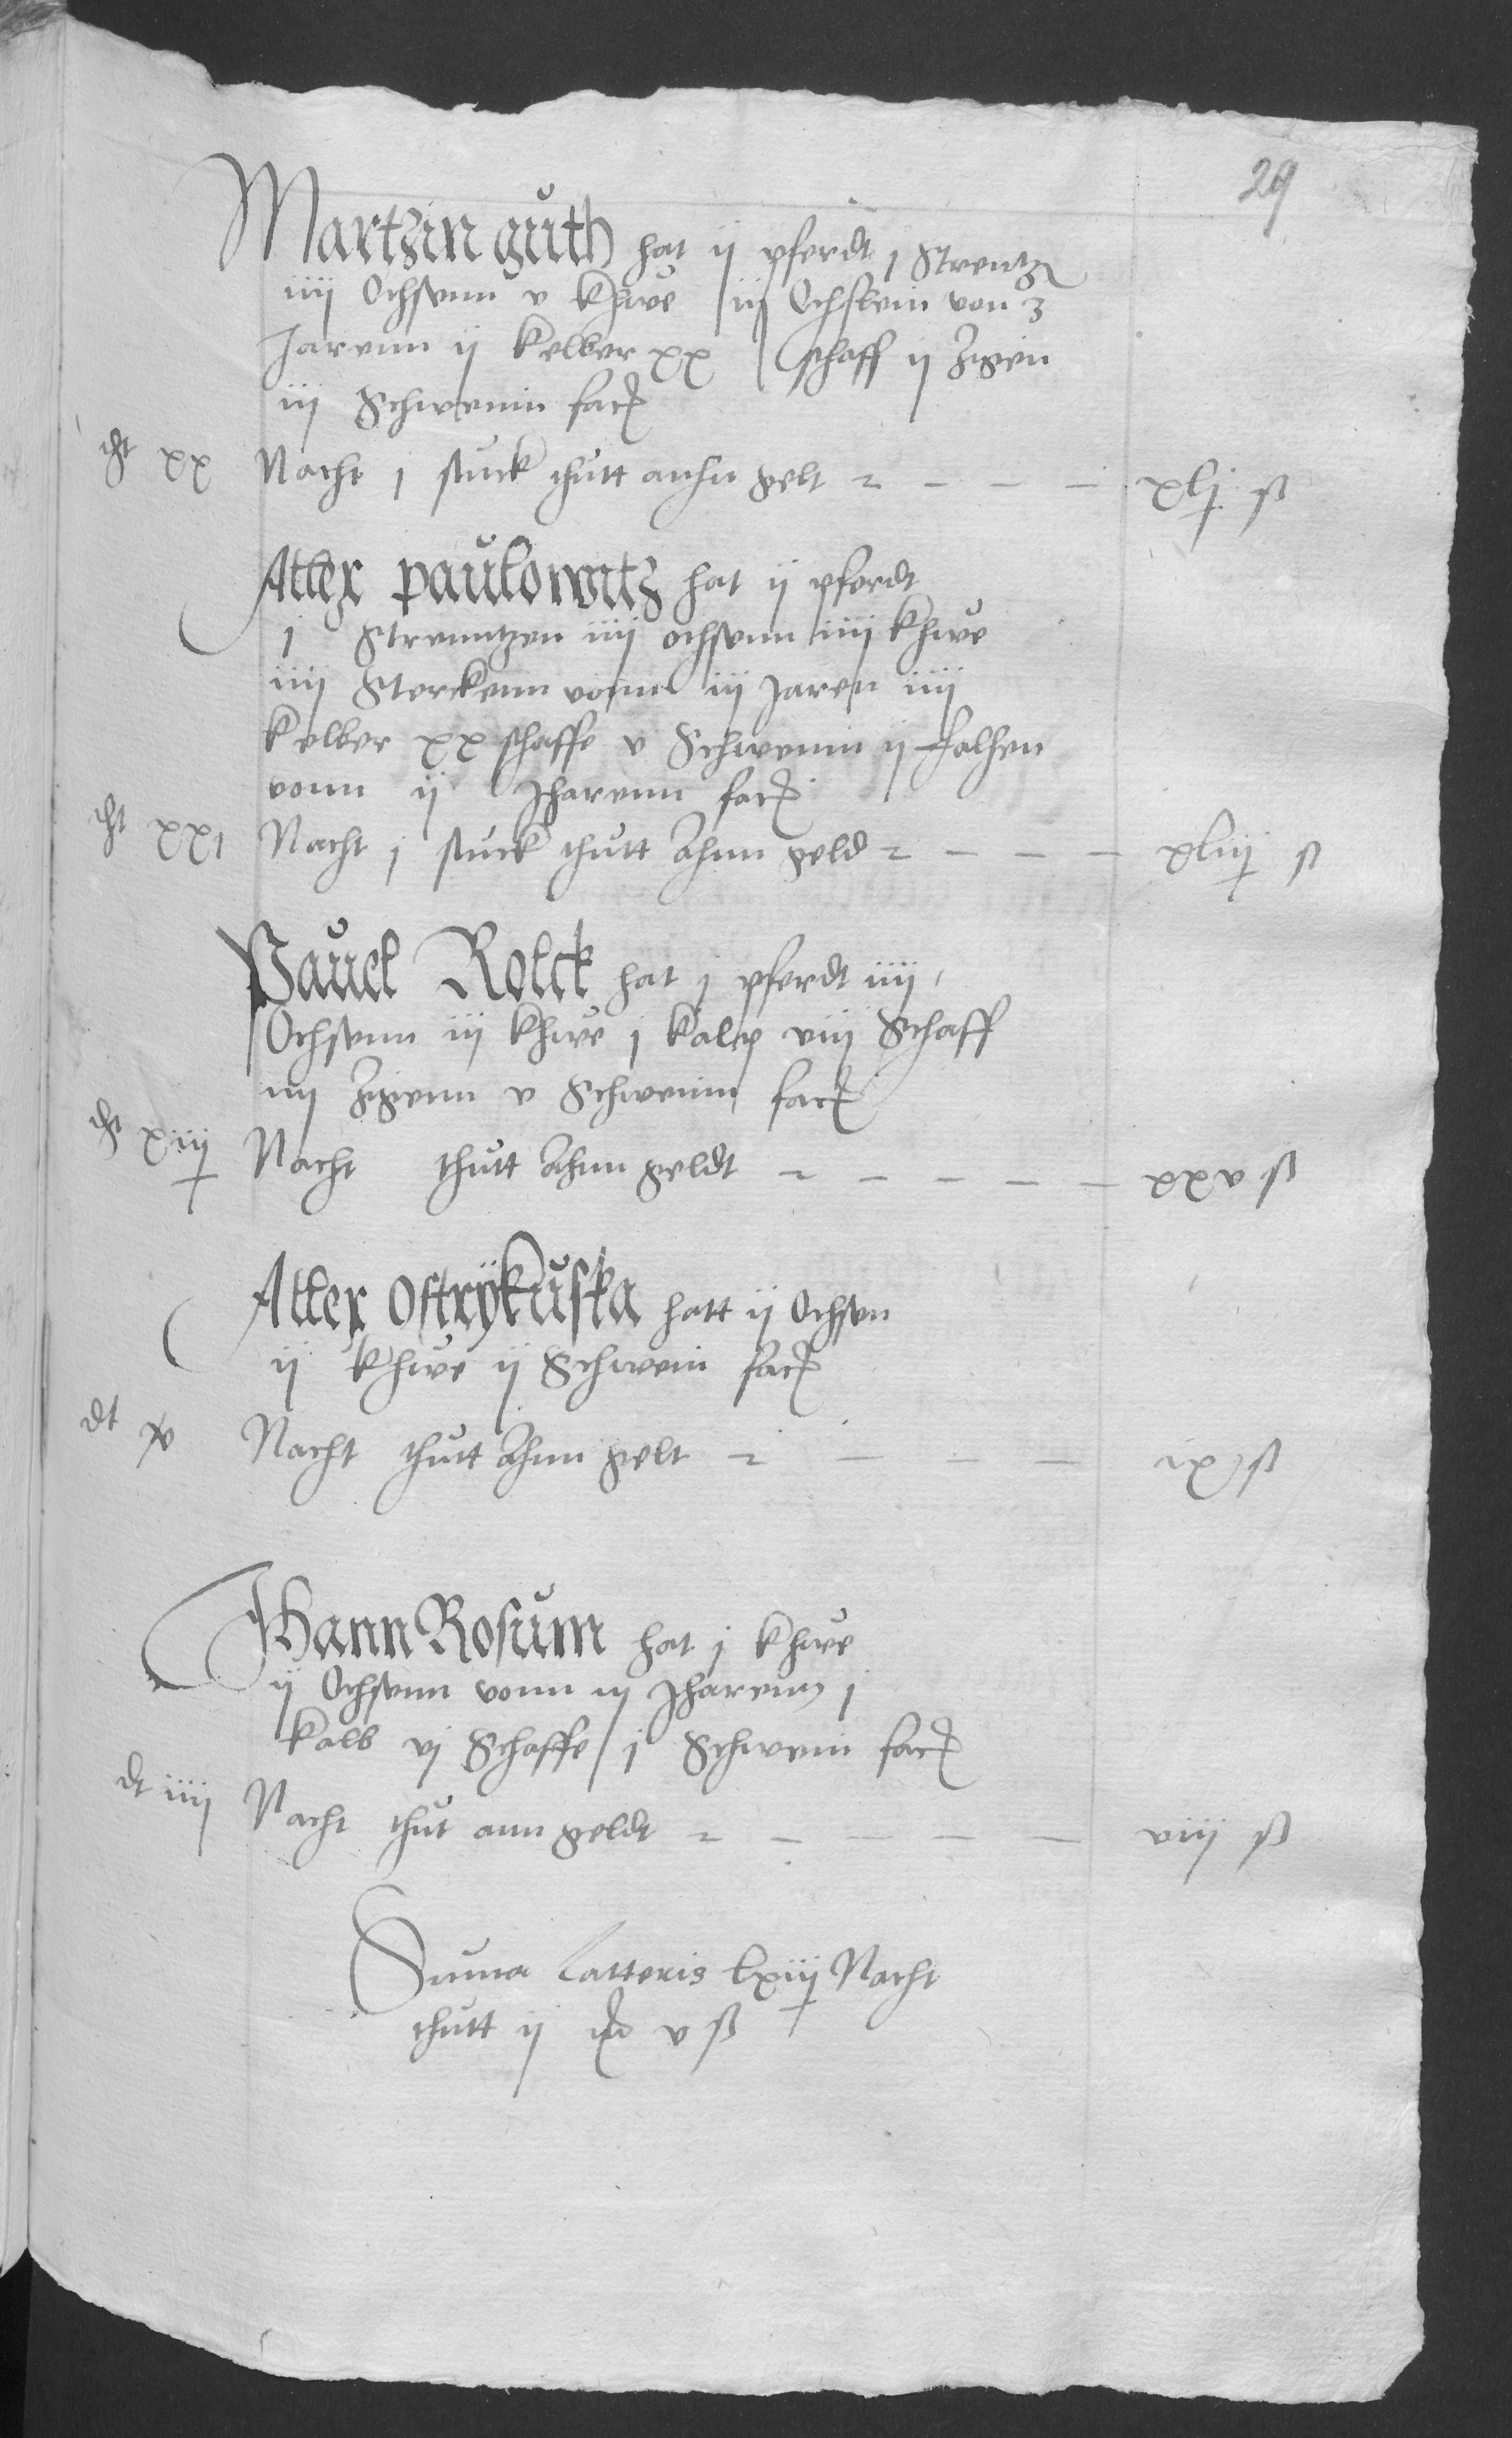 29
Martzin guth hat ij pferdt j Strentz
iiij Ochsenn v khwe iij Ochslein von 3
Jarenn ij kelber xx schaff ij Zigen
iij Schwenin facit
cht xx Nacht j stuck thutt anhn gelt - - - - xlj ß
Allex paulowitz hat ij pferdt
j Strenntzen iiij ochsenn iiij khwe
iiij Sterckenn vonn iij Jaren iiij
kelber xx schaffe v Schwenin ij falhen
vonn ij Jharenn facit
cht xxj Nacht j stuck thutt Ahnn geld - - - - xliij ß
Pauel Rolck hat j pferdt iiij
Ochsenn iij khwe j kalp viij Schaff
iiij Zigenn v Schwenin facit
cht xiij Nacht thutt Ahnn geldt - - - - - xxv ß
Allex Ostrÿkuska hatt ij Ochsen
ij khwe ij Schwein facit
dt v Nacht thutt Ahnn gelt - - - - ix ß
Hann Rosum hat j khwe
ij Ochsenn vonn iij Jharenn j
kalb vj Schaffe j Schwein facit
dt iiij Nacht thut ann geldt - - - - - viij ß
Suma latteris lxiij Nacht
thutt ij v ß